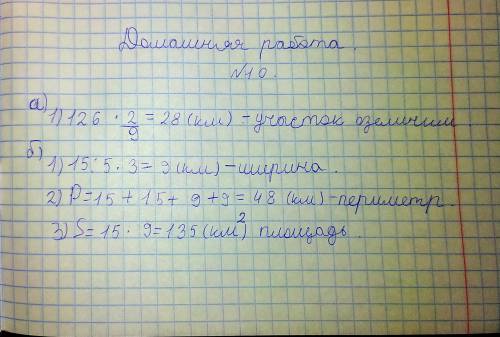 Домашняя работа.
№10.
а) 1) 126 · 2/9 = 28 (км) - участок озеленим.
б) 1) 15 : 5 · 3 = 9 (км) - ширина.
2) P = 15 + 15 + 9 + 9 = 48 (км) - периметр.
3) S = 15 · 9 = 135 (км²) площадь.